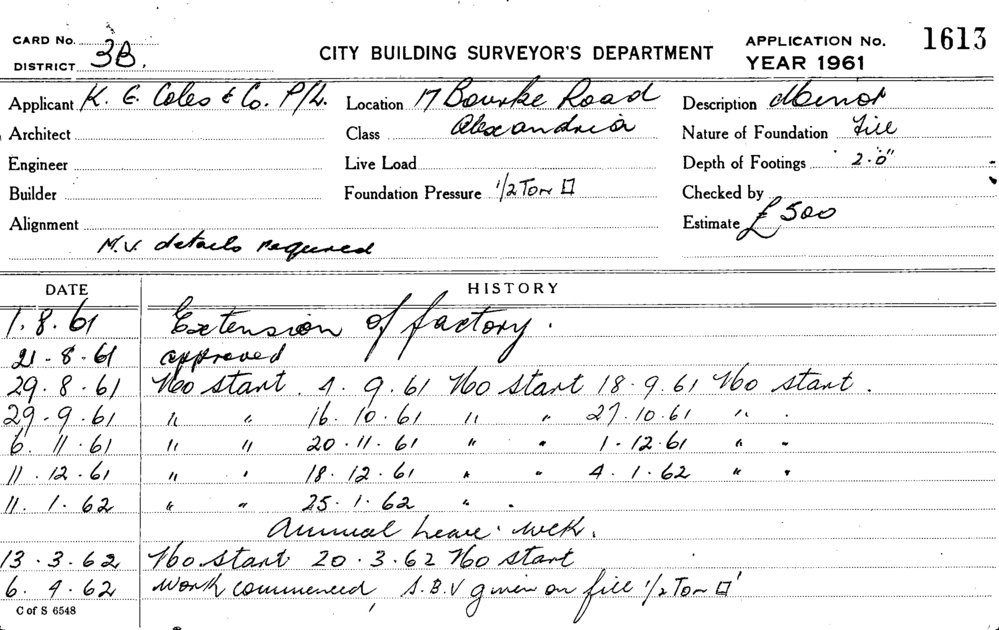 CARD No.
DISTRICT 3B.
CITY BUILDING SURVEYOR'S DEPARTMENT
APPLICATION No. 1613
YEAR 1961
Applicant K. G. Coles & Co. P/L. Location 17 Bourke Road Description Minor
Architect Class Alexandria Nature of Foundation Fill
Engineer Live Load Depth of Footings 2.0"
Builder Foundation Pressure 1/2 Ton □ Checked by
Alignment Estimate £500
M.V. details required
DATE HISTORY
1.8.61 Extension of factory.
21-8-61 approved
29.8.61 No start. 4.9.61 No start 18.9.61 No start.
29.9.61 " " 16.10.61 " " 27.10.61 " .
6.11.61 " " 20.11.61 " " 1.12.61 " "
11.12.61 " " 18.12.61 " " 4.1.62 " "
11.1.62 " " 25.1.62 " .
Annual Leave.
13.3.62 No start 20.3.62 No start
6.4.62 Work commenced, S.B.V given on fill 1/2 Ton □'
C of S 6548